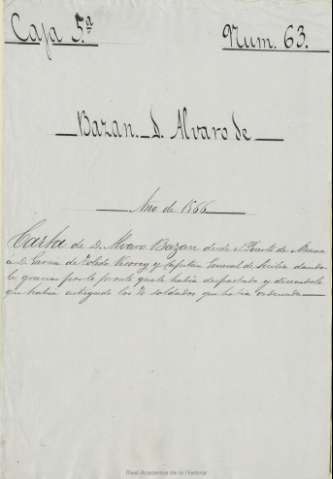 Caja 5.ª Num. 63.
Bazan. D. Alvaro de
Año de 1566
Carta de D. Alvaro Bazan desde el Puerto de
a D. Garcia de Toledo Virrey y Capitan General de Sicilia dando
le gracias por lo pronto que le habia despachado y diciendole
que habia entregado los soldados que habia ordenado
Real Academia de la Historia